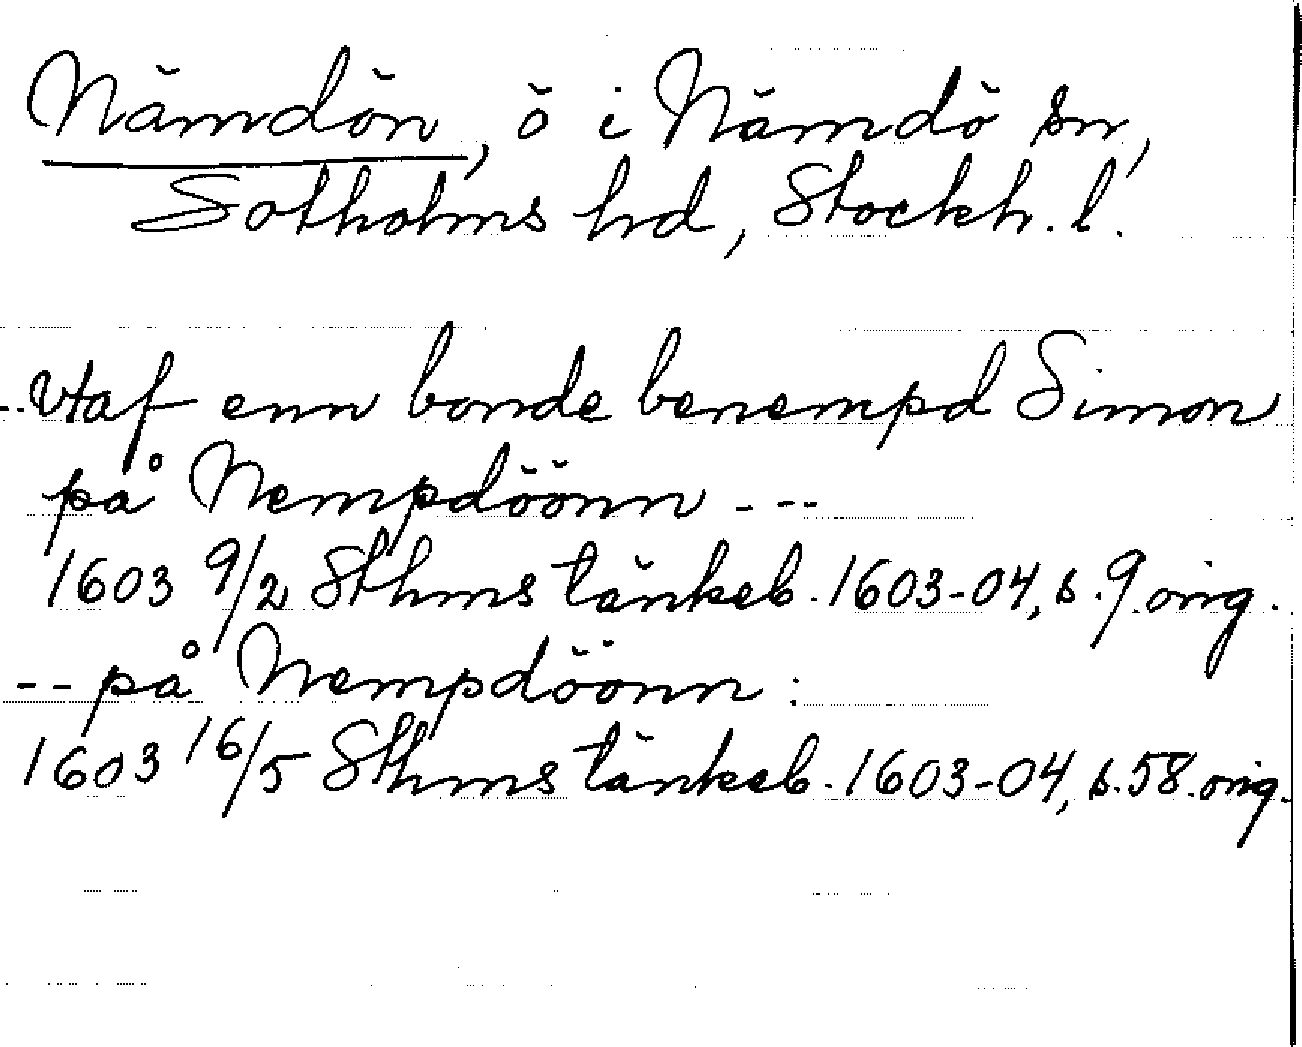 Nämdön, ö i Nämdö sn,
Sotholms hd, Stockh. l.
--vtaf enn bonde benempd Simon
på Nempdöönn ---
1603 9/2 Sthms tänkeb. 1603-04, s. 9 orig.
-- på Nempdöönn :
1603 16/5 Sthms tänkeb. 1603-04, s. 58 orig.